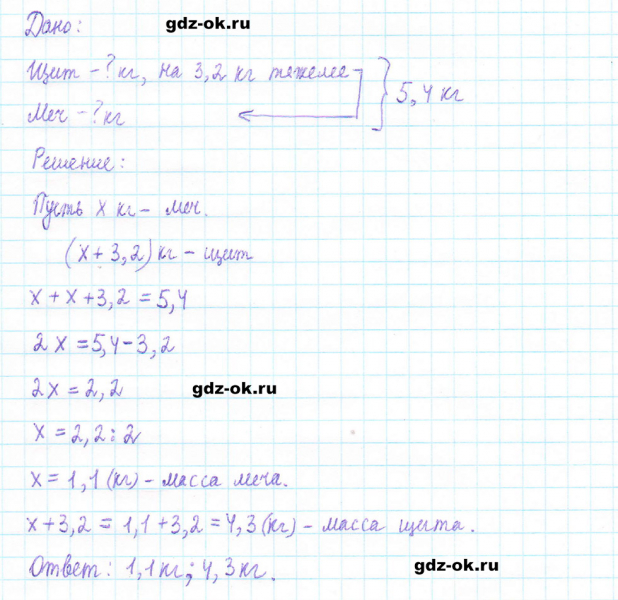 Дано:
gdz-ok.ru
Щит - ? кг, на 3,2 кг тяжелее
Меч - ? кг
5,4 кг
Решение:
Пусть x кг - меч.
(x + 3,2) кг - щит
x + x + 3,2 = 5,4
2x = 5,4 - 3,2
2x = 2,2
gdz-ok.ru
x = 2,2 : 2
x = 1,1 (кг) - масса меча.
x + 3,2 = 1,1 + 3,2 = 4,3 (кг) - масса щита.
Ответ: 1,1 кг; 4,3 кг.
gdz-ok.ru